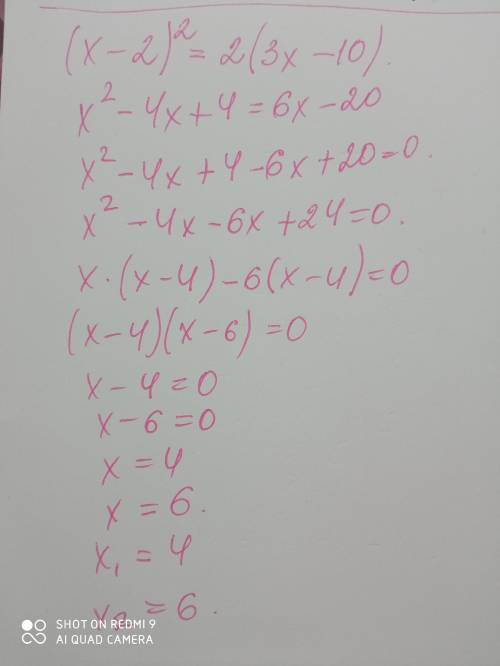 (x-2)² = 2(3x-10).
x² - 4x + 4 = 6x - 20
x² - 4x + 4 - 6x + 20 = 0.
x² - 4x - 6x + 24 = 0.
x · (x-4) - 6(x-4) = 0
(x-4)(x-6) = 0
x - 4 = 0
x - 6 = 0
x = 4
x = 6.
x₁ = 4
x₂ = 6.
SHOT ON REDMI 9
AI QUAD CAMERA